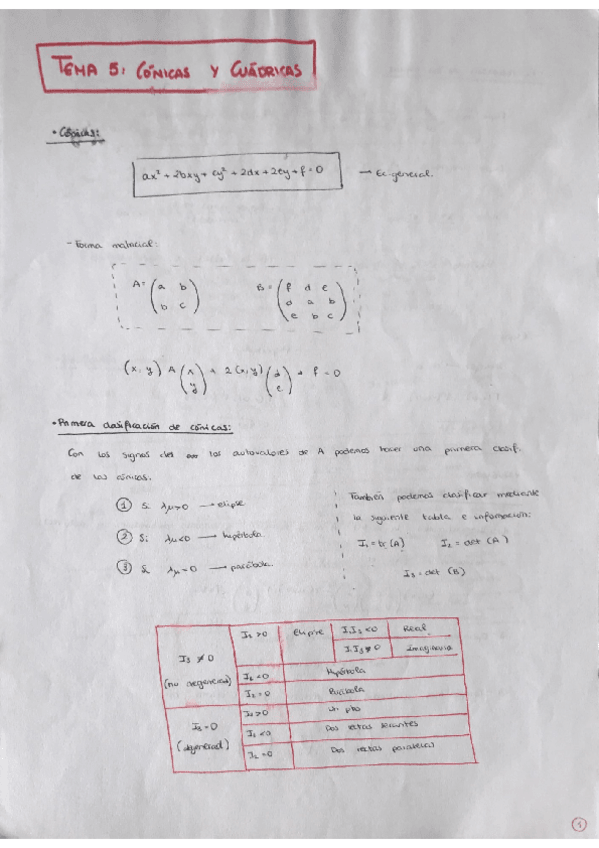 TEMA 5: CÓNICAS Y CUÁDRICAS
• Cónicas:
ax² + 2bxy + cy² + 2dx + 2ey + f = 0 → Ec general.
- Forma matricial:
A = (a b; b c) B = (f d e; d a b; e b c)
(x, y) A (x; y) + 2 (x, y) (d; e) + f = 0
• Primera clasificación de cónicas:
Con los signos de los autovalores de A podemos hacer una primera clasif.
de las cónicas.
① Si λμ>0 → elipse
② Si λμ<0 → hipérbola
③ Si λμ=0 → parábola.
También podemos clasificar mediante
la siguiente tabla e información:
I₁ = tr (A) I₂ = det (A)
I₃ = det (B)
I₃ ≠ 0
(no degenerad)
I₂ >0 Elipse I₁I₃ <0 Real
Imaginaria
I₂ <0 Hipérbola
I₂ =0 Parábola
I₃ = 0
(degenerad)
I₂ >0 Un pto
I₂ <0 Dos rectas secantes
I₂ =0 Dos rectas paralelas
1